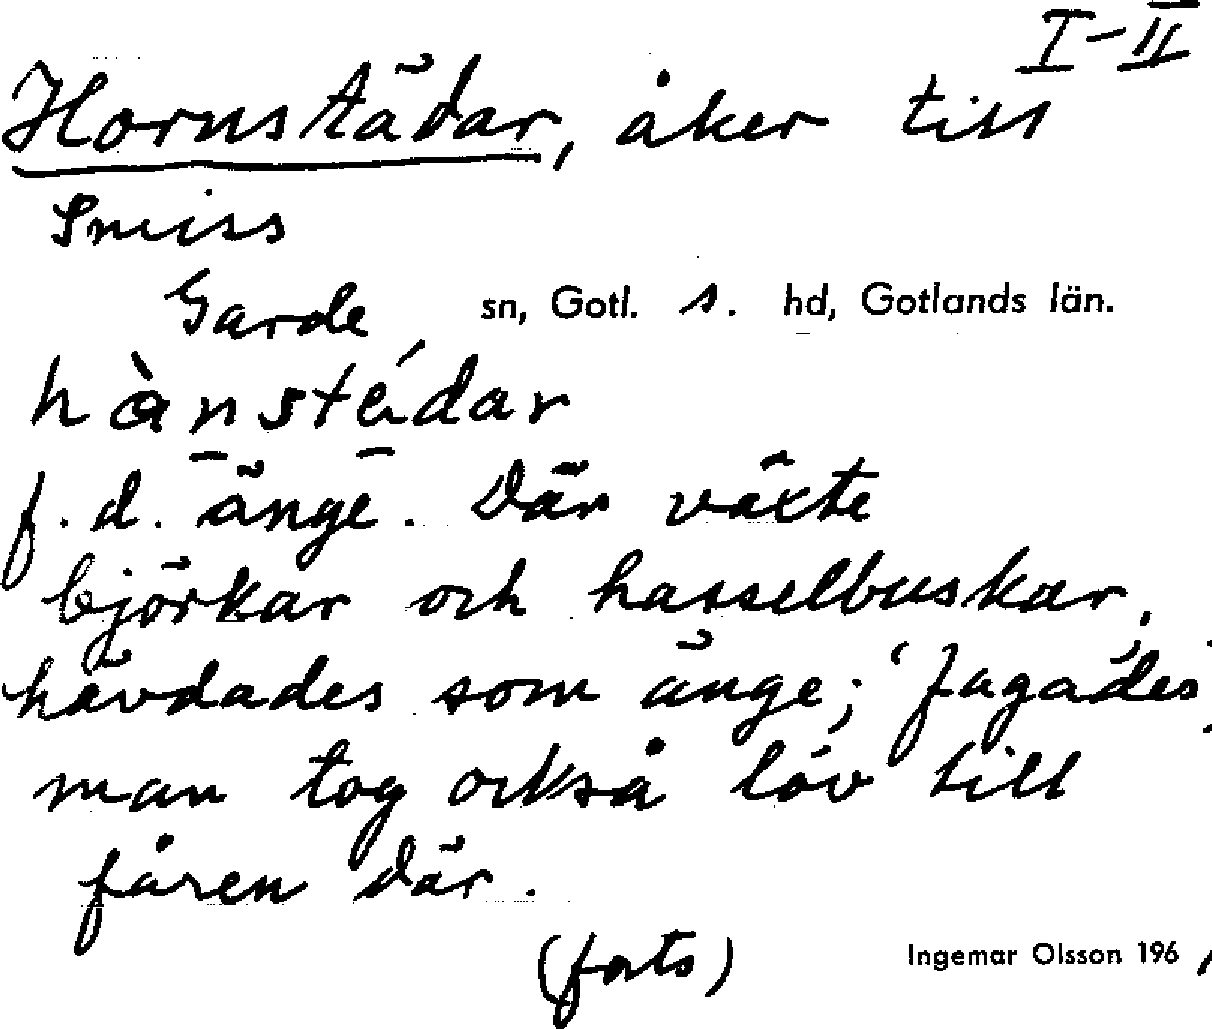 I-II
Hornstädar, åker till
Smiss
Garde sn, Gotl. s. hd, Gotlands län.
hànstédar
f.d. änge. Där växte
björkar och hasselbuskar,
hävdades som änge; 'fagades'
man tog också löv till
fåren där.
(forts)
Ingemar Olsson 196